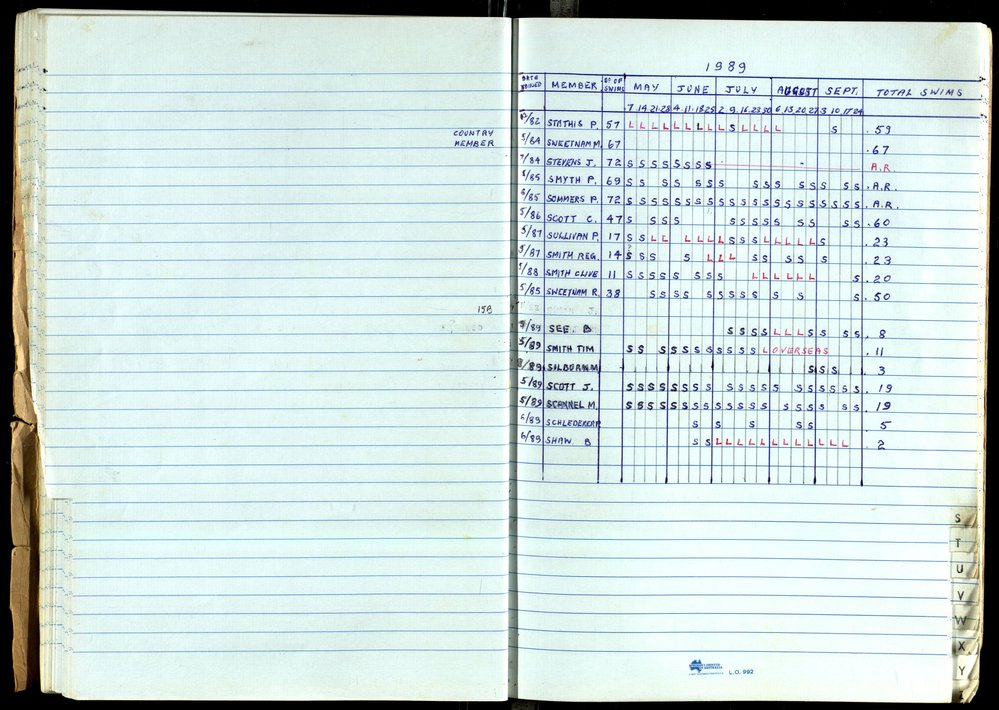 1989
DATE JOINED MEMBER No OF SWIMS MAY JUNE JULY AUGUST SEPT. TOTAL SWIMS
7 14 21 28 4 11 18 25 2 9 16 23 30 6 13 20 27 3 10 17 24
/82 STATHIS P. 57 L L L L L L L L L S L L L L S . 59
COUNTRY MEMBER 5/84 SWEETNAM M. 67 . 67
/84 STEVENS J. 72 S S S S S S S S A.R.
/85 SMYTH P. 69 S S S S S S S S S S S S S S S . A.R.
6/85 SOMMERS P. 72 S S S S S S S S S S S S S S S S S S S S S . A.R.
5/86 SCOTT C. 47 S S S S S S S S S S S S S . 60
5/87 SULLIVAN P. 17 S S L L L L L L S S S L L L L L S . 23
5/87 SMITH REG. 14 S S S S L L L S S S S S . 23
/88 SMITH CLIVE 11 S S S S S S S S L L L L L L S . 20
5/85 SWEETNAM R. 38 S S S S S S S S S S S S . 50
15B
5/89 SEE. B S S S S L L L S S S S . 8
5/89 SMITH TIM S S S S S S S S S S S L OVERSEAS . 11
/89 SILBORN M S S S . 3
5/89 SCOTT J. S S S S S S S S S S S S S S S S S S S . 19
5/89 SCANNEL M. S S S S S S S S S S S S S S S S S S S . 19
/89 S S S S S . 5
6/89 SHAW B S S L L L L L L L L L L L L . 2
S
T
U
V
W
X
Y
L.O. 992